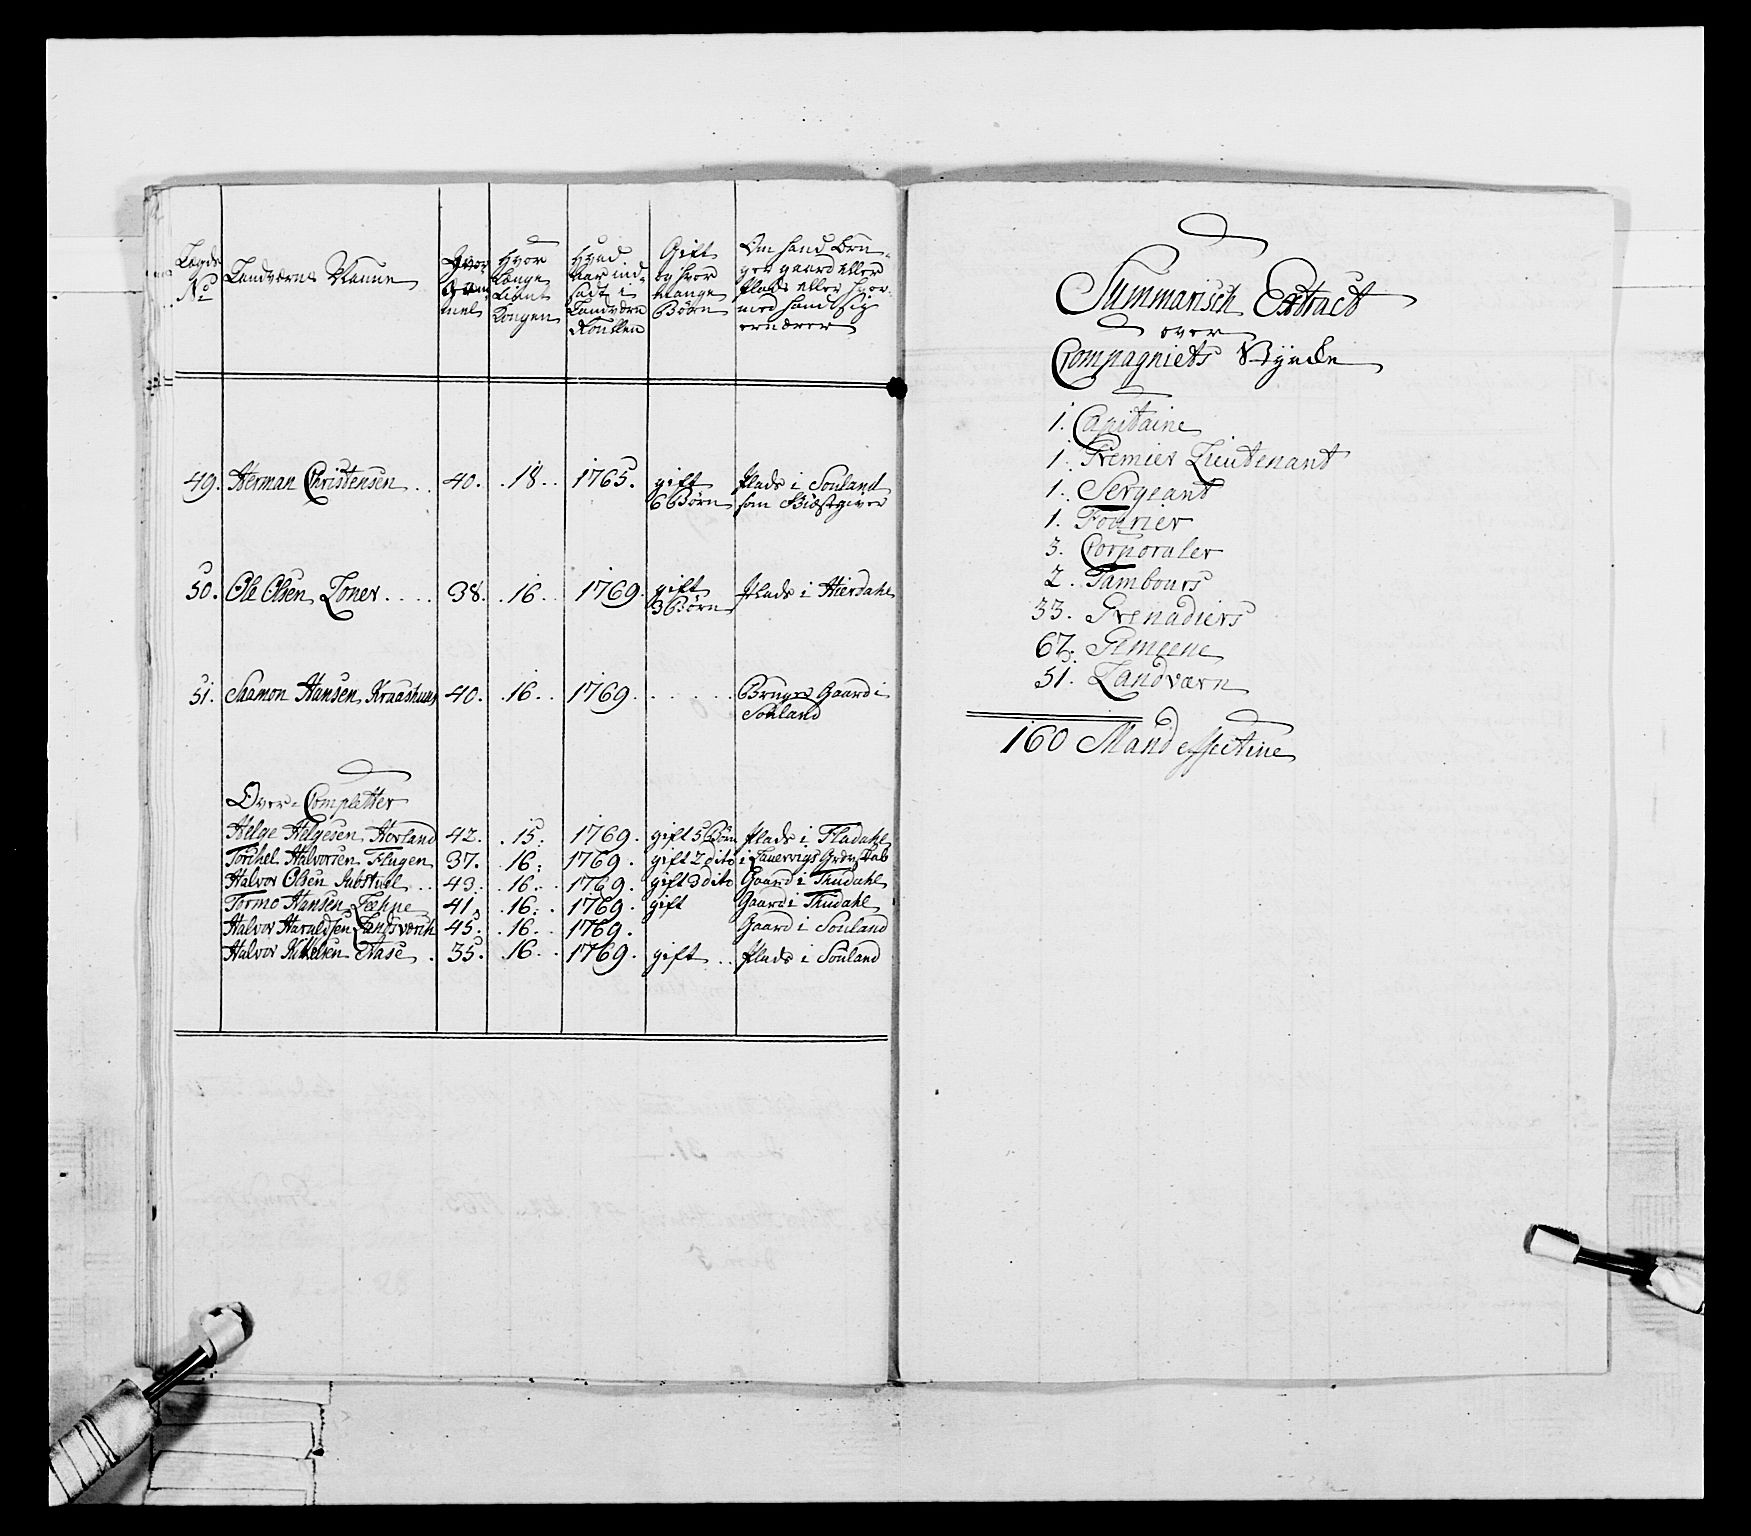 Lægds No
Landværns Nafne
Hvor gam mel
Hvor Længe tient Kongen
Hvad Aar ind- sadt i Landværn Roullen
Gift og hvor Mange Børn
Om hand bru- ger gaard eller Plads eller hvor- med hand sig ernærer
49. Herman Christensen . . 40. . 18 . . 1765. gift 6 Børn Plads i Souland som Skiæstgiver
50. Ole Olsen Loner . . . . 38. . 16 . . 1769. gift 3 Børn Plads i Hierdahl
51. Saamon Hansen 40. . 16 . . 1769. . . . . . Bruger Gaard i Souland
Over-Completter
Helge Helgesen Hovland 42. . 15. 1769. gift 5 Børn Plads i Fladahl
Torchel Halvorsen Flugen 37. . 16. 1769. gift 2 dito i Lauervigs
Halvor Olsen . . 43. . 16. . 1769. gift 3 dito Gaard i Thudahl
Tormo Hansen 41. . 16. . 1769. gift Gaard i Thudahl
Halvor Haraldsen Landsværch 45. . 16. . 1769. Gaard i Souland
Halvor Kittelsen Aase . 35. . 16. . 1769. gift . . Plads i Souland
Summarisch Extract
over
Compagniets Stÿrke
1. Capitaine
1. Premier Lieutenant
1. Sergeant
1. Fourier
3. Corporaler
2. Tambours
33. Grenadiers
67. Gemeene
51. Landværn
160 Mand effective